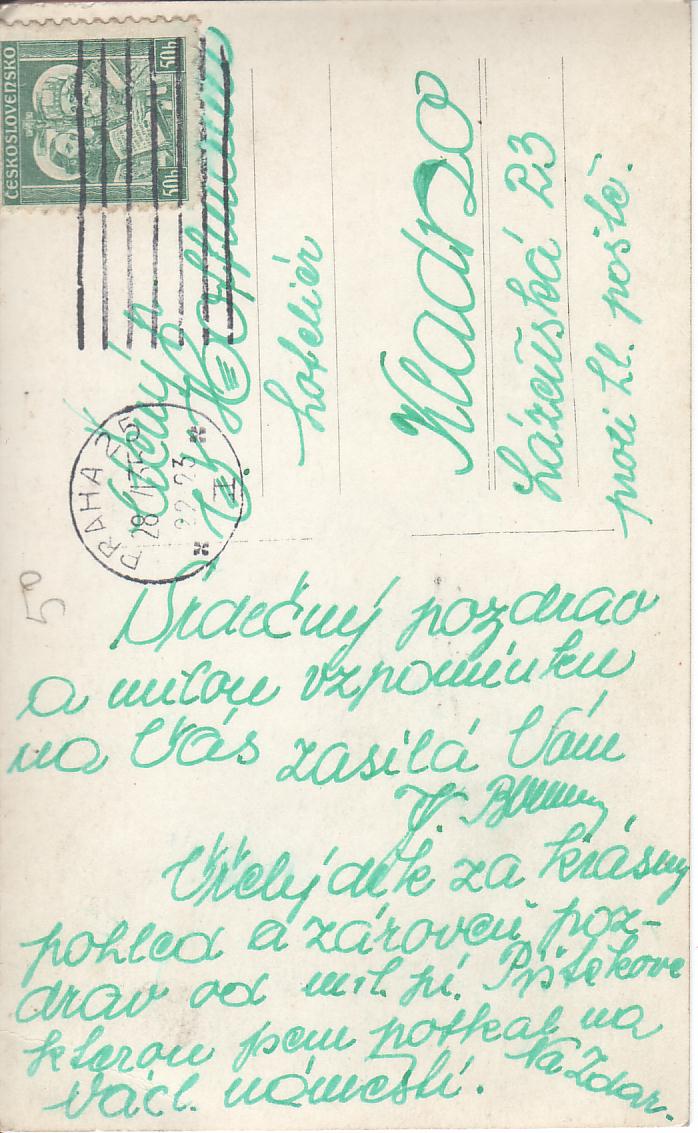 ČESKOSLOVENSKO
50h
50h
PRAHA 25
22 23
Hoffmann
hotelier
Kladno
Lázeňská 23
proti hl. poště.
50
Srdečný pozdrav
a milou vzpomínku
na Vás zasílá Vám
Vřelý dík za krásny
pohled a zároveň poz-
drav od mil. pí. Pištěkove
kterou jsem potkal na
Václ. náměstí. Na Zdar.